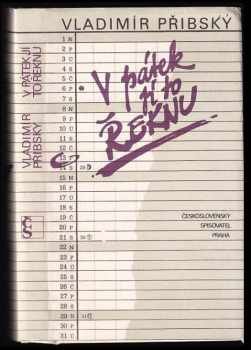 VLADIMÍR PŘIBSKÝ
V PÁTEK JÍ
TO ŘEKNU
VLADIMÍR
PŘIBSKÝ
V pátek
jí to
ŘEKNU
1 N
2 P
3 Ú
4 S
5 Č
6 P
7 S
8 N
9 P
10 Ú
11 S
12 Č
13 P
14 S
15 N
16 P
17 Ú
18 S
19 Č
20 P
21 S
22 N
23 P
24 Ú
25 S
26 Č
27 P
28 S
29 N
30 P
31 Ú
ČESKOSLOVENSKÝ
SPISOVATEL
PRAHA